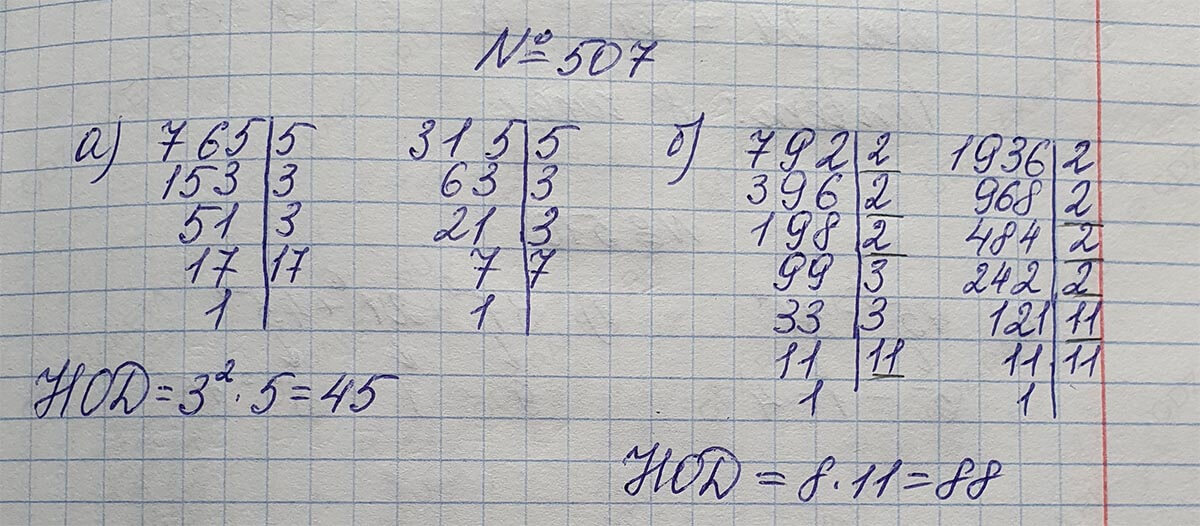 № 507
а) 765 | 5 315 | 5 б) 792 | 2 1936 | 2
153 | 3 63 | 3 396 | 2 968 | 2
51 | 3 21 | 3 198 | 2 484 | 2
17 | 17 7 | 7 99 | 3 242 | 2
1 | 1 | 33 | 3 121 | 11
11 | 11 11 | 11
1 | 1 |
НОД = 3² · 5 = 45
НОД = 8 · 11 = 88